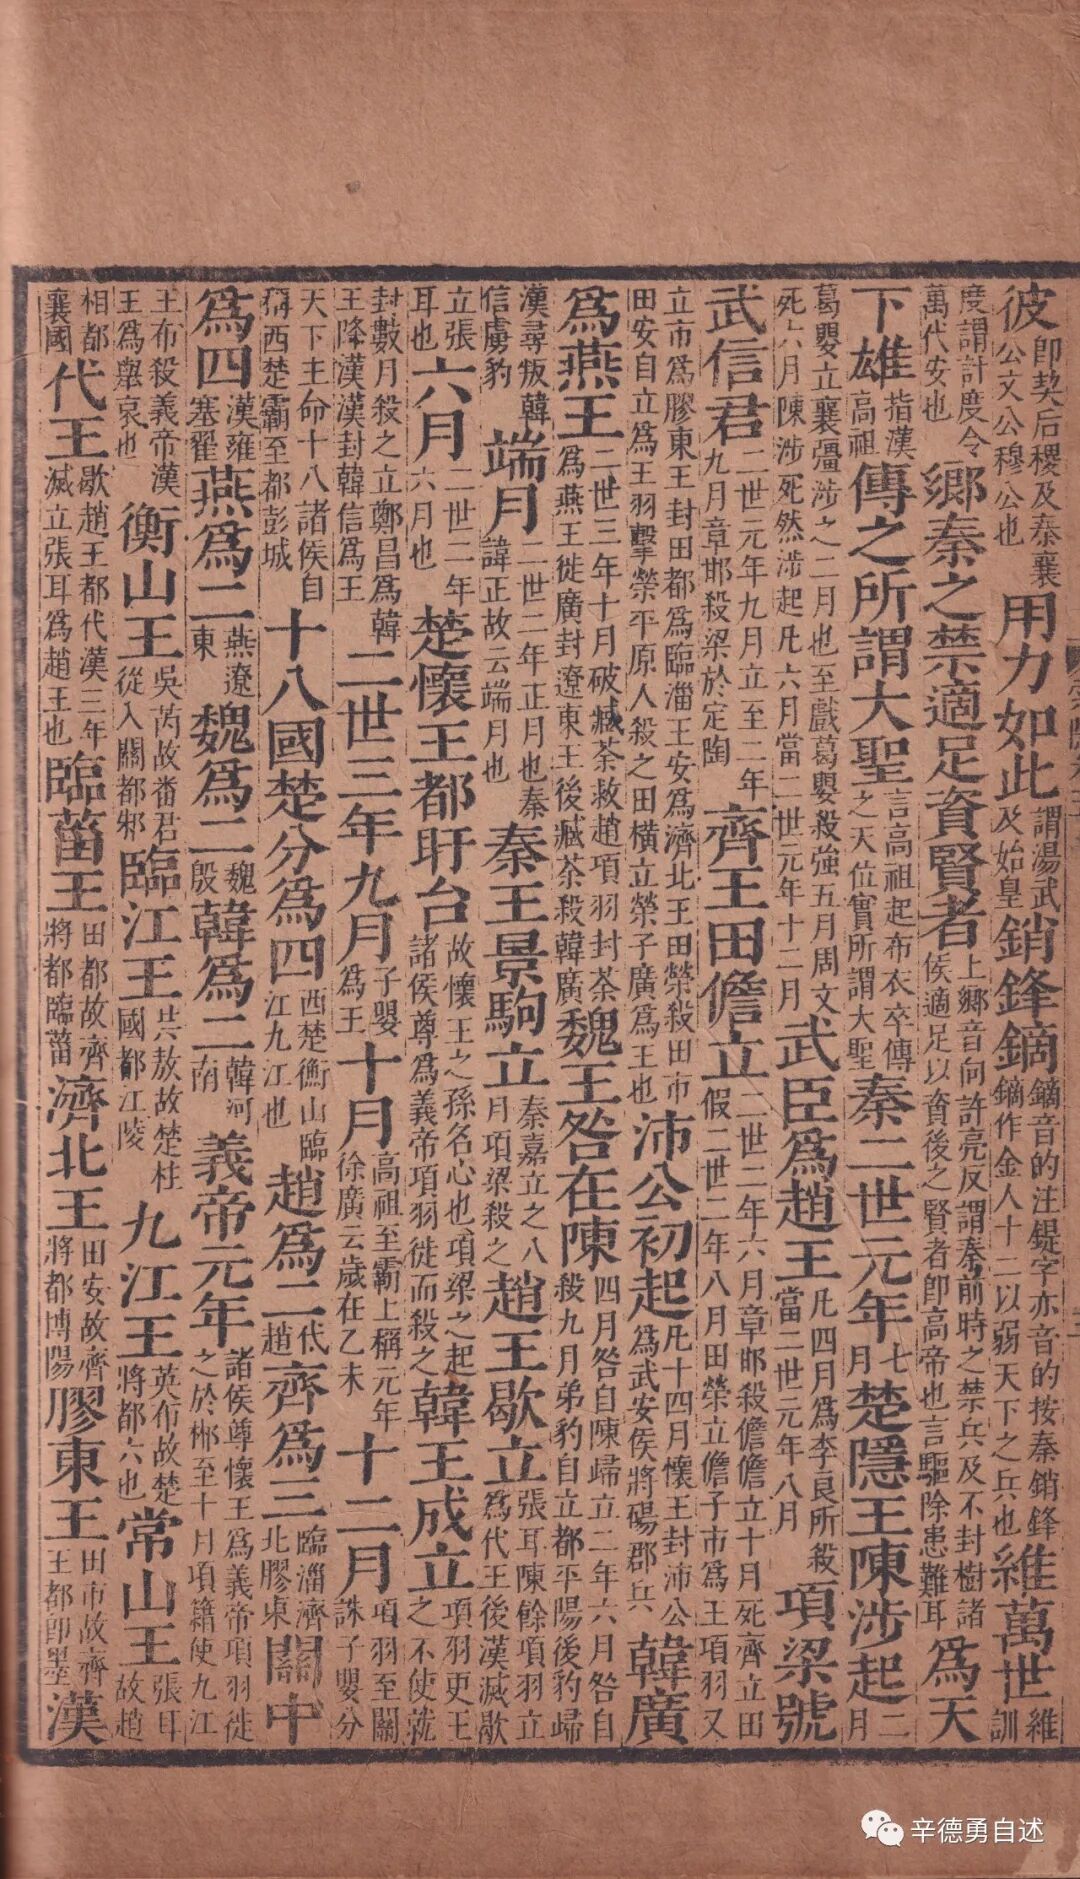 彼即契后稷及秦襄公文公穆公也用力如此謂湯武及始皇銷鋒鏑鏑音的注鍉字亦音的按秦銷鋒鏑作金人十二以弱天下之兵也維萬世維訓
度謂計度令萬代安也鄉秦之禁適足資賢者上鄉音向許亮反謂秦前時之禁兵及不封樹諸侯適足以資後之賢者即高帝也言驅除患難耳為天
下雄指漢高祖傳之所謂大聖言高祖起布衣卒傳之天位實所謂大聖秦二世元年七月楚隱王陳涉起二月
葛嬰立襄彊涉之二月也至戲葛嬰殺強五月周文死六月陳涉死然涉起凡六月當二世元年十二月武臣為趙王凡四月為李良所殺當二世元年八月項梁號
武信君二世元年九月立至二年九月章邯殺梁於定陶齊王田儋立二世二年六月章邯殺儋儋立十月死齊立田假二世二年八月田榮立儋子市為王項羽又
立市為膠東王封田都為臨淄王安為濟北王田榮殺田市田安自立為王羽擊榮平原人殺之田橫立榮子廣為王也沛公初起凡十四月懷王封沛公為武安侯將碭郡兵韓廣
為燕王二世三年十月破臧荼救趙項羽封荼為燕王徙廣封遼東王後臧荼殺韓廣魏王咎在陳四月咎自陳歸立二年六月咎自殺九月弟豹自立都平陽後豹歸
漢尋叛韓信虜豹端月二世二年正月也秦諱正故云端月也秦王景駒立秦嘉立之八月項梁殺之趙王歇立張耳陳餘項羽立為代王後漢滅歇
立張耳也六月二世二年六月也楚懷王都盱台故懷王之孫名心也項梁之起諸侯尊為義帝項羽徙而殺之韓王成立項羽更王之不使就
封數月殺之立鄭昌為韓王降漢漢封韓信為王二世三年九月子嬰為王十月高祖至霸上稱元年徐廣云歲在乙未十二月項羽至關誅子嬰分
天下主命十八諸侯自稱西楚霸至都彭城十八國楚分為四西楚衡山臨江九江也趙為二代趙齊為三臨淄濟北膠東關中
為四漢雍塞翟燕為二燕遼東魏為二魏殷韓為二韓河南義帝元年諸侯尊懷王為義帝項羽徙之於郴至十月項籍使九江
王布殺義帝漢王為舉哀也衡山王吳芮故番君從入關都邾臨江王共敖故楚柱國都江陵九江王英布故楚將都六也常山王張耳故趙
相都襄國代王歇趙王都代漢三年滅立張耳為趙王也臨菑王田都故齊將都臨菑濟北王田安故齊將都博陽膠東王田市故齊王都即墨漢
辛德勇自述